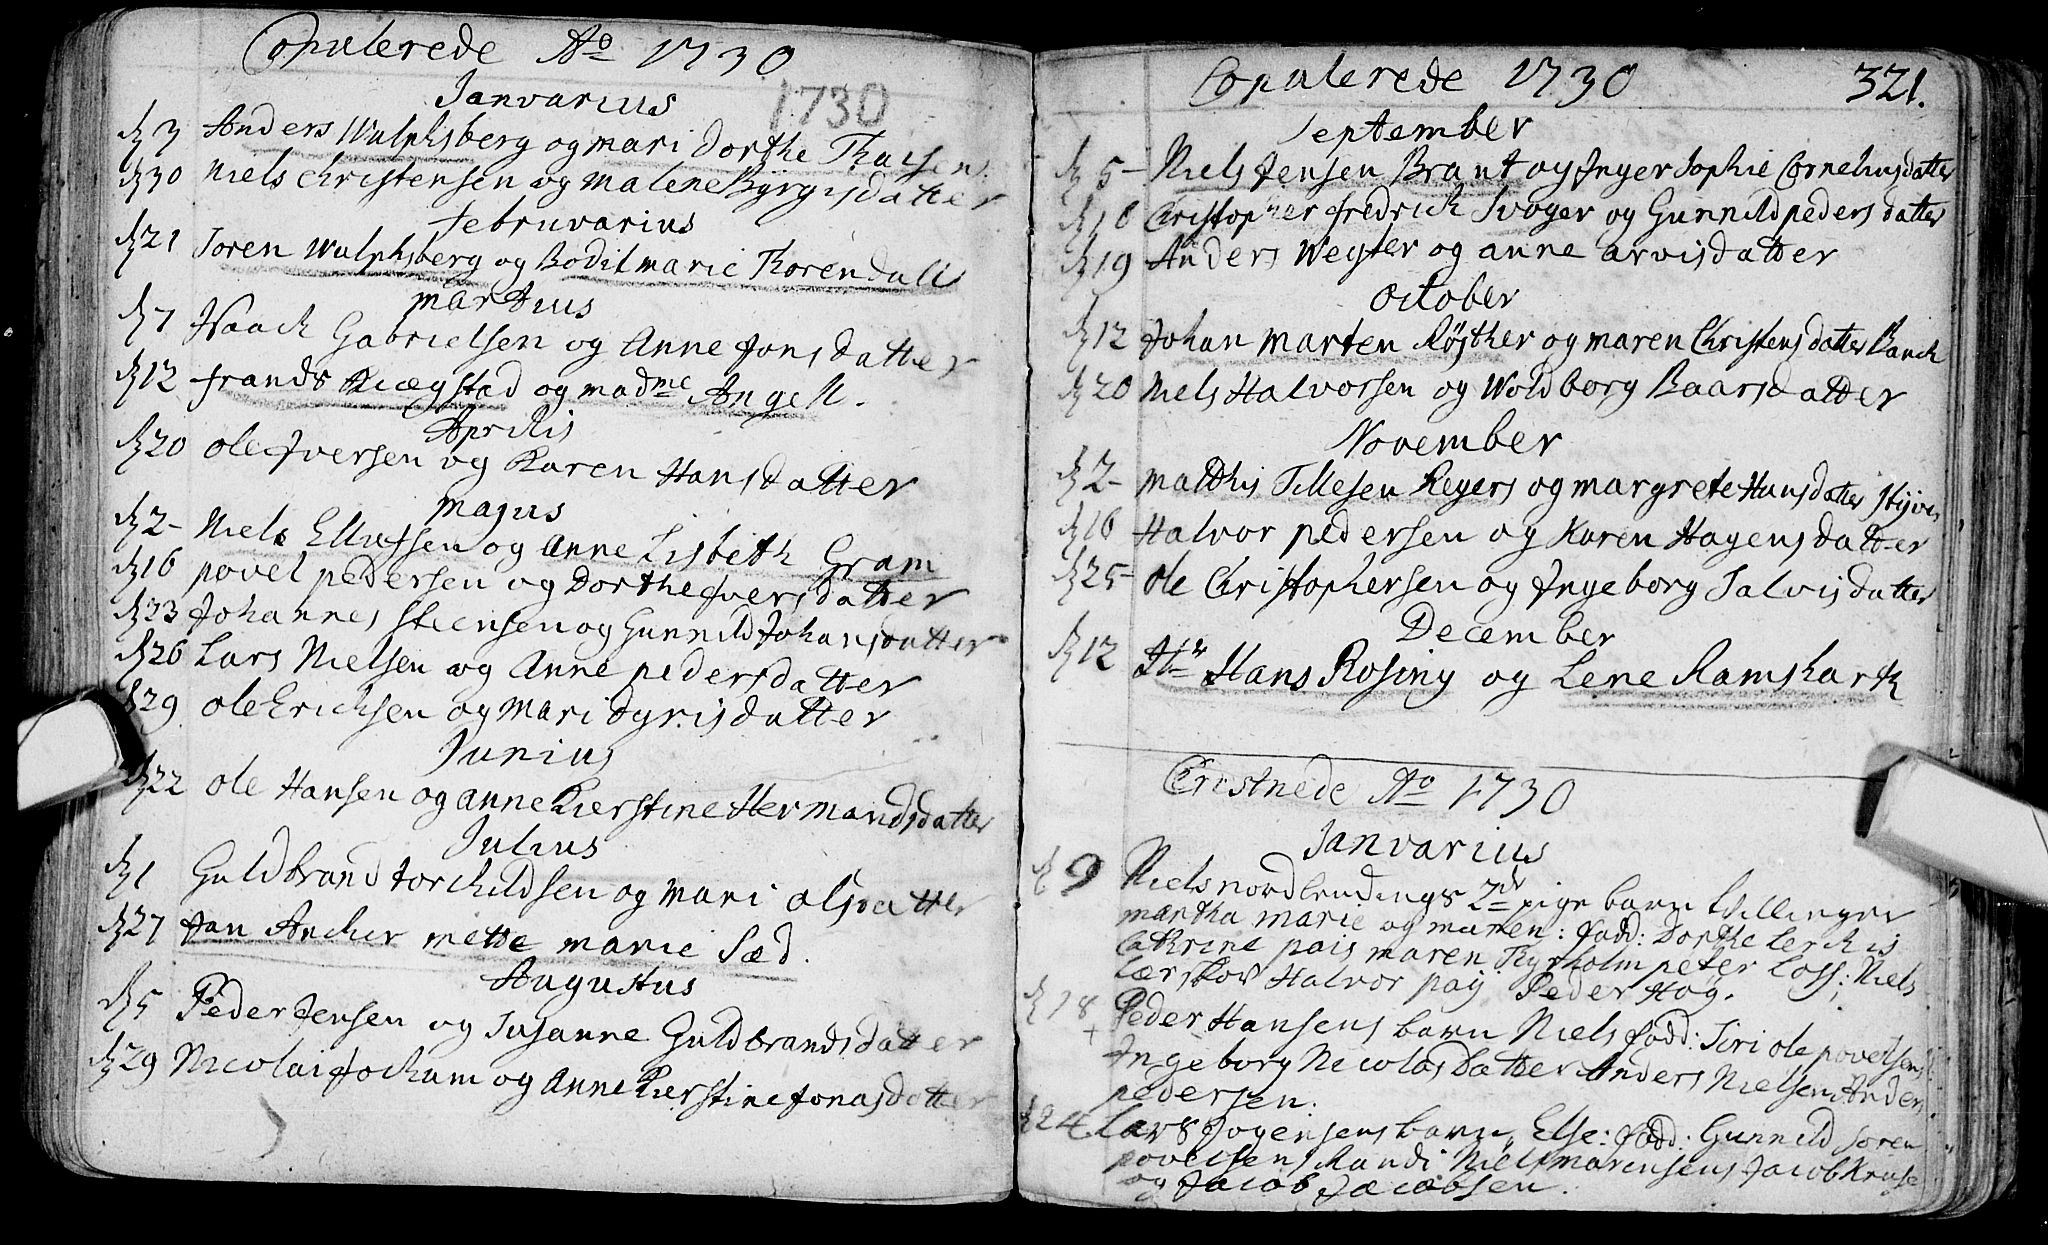 Copulerede Ao 1730
1730
Janvarius
d 3 Anders Wulphsberg og mari Dorthe Thaisen
d 30 Niels Christensen og Malene Byrgisdatter
Februvarius
d 21 Soren Wulphsberg og Bodil marie Thorendall
martius
d 7 Isaach Gabrielsen og Anne Jonsdatter
d 12 frands og madme Angell.
Aprilis
d 20 ole Iversen og Karen Hansdatter
majus
d 2- Niels Ellufsen og Anne Lisbeth Gram
d 16 povel pedersen og Dorthe Iversdatter
d 23 Johannes Steensen og Gunnild Johansdatter
d 26 Lars Nielsen og Anne pedersdatter
d 29 ole Ericksen og Mari Gyrisdatter
Junius
d 22 ole Hansen og anne Kierstine Hermandsdatter
Julius
d 1 Guldbrand torchildsen og mari olsdatter
d 27 Jan Ancher mette marie Sæd.
Augustus
d 5 Peder Jensen og Susanne Guldbrandsdatter
d 29 Nicolai Jocham og Anne Kierstine Jonasdatter
Copulerede 1730 321.
September
d 5- Niels Jensen Brant og Inger Sophie Cornelius datter
d 10 Christopher fredrich Svoger og Gunnild peders datter
d 19 Anders Weyter og anne arvisdatter
October
d 12 Johan Marten Røsther og maren Christens datter Banch
d 20 Niels Halvorsen og Woldborg Baarsdatter
November
d 2- Matthis Tillesen Reyers og margrete Hansdatter
d 16 Halvor pedersen og Karen Hagensdatter
d 25- ole Christophersen og Ingeborg Salvisdatter
December
d 12 Hr Hans Rosing og Lene Ramshart
Christnede Ao 1730
Janvarius
d 9 Niels nordlendings 2de pige barn tvillinger
martha marie og maren: fadd: Dorthe Lerches
Cathrine pais maren Thyrholm peter Loss: Niels
Lærskov Halvor paij Peder Hog.
d 18 Peder Hansens barn Niels fadd: Siri ole povelsens
Ingeborg Nicolasdatter Anders Nielsen Anders
pedersen.
d 24 Lars Jogensens barn Else: fadd: Gunnild soren
povelsens Randi Niels marensens Jacob Kruse
og Jacob Jacobsen.